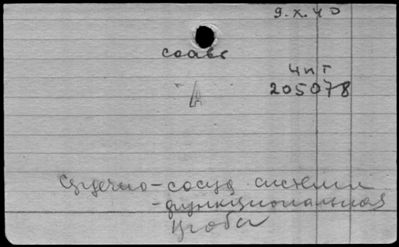 9.X.40
соавт
Чит
205078
Сердечно-сосуд системы
-функциональная
проба